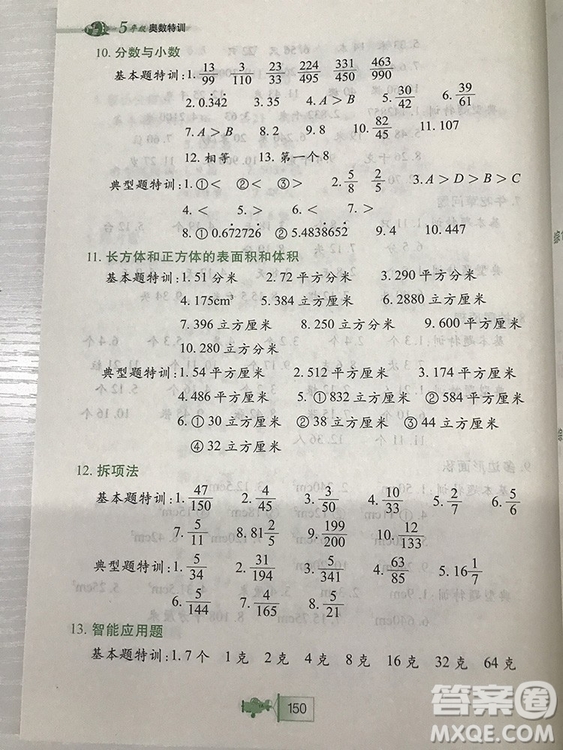 5年级奥数特训
10. 分数与小数
基本题特训：1. 13/99 3/110 23/233 224/495 331/450 463/990
2. 0.3̇42̇ 3. 35 4. A>B 5. 30/42 6. 39/61
7. A>B 8. 2 9. 8 10. 82/45 11. 107
12. 相等 13. 第一个8
典型题特训：1. ①< ②< ③> 2. 5/8 2/5 3. A>D>B>C
4. < 5. > 6. < 7. >
8. ① 0.672726̇ ② 5.4838652̇ 9. 4 10. 447
11. 长方体和正方体的表面积和体积
基本题特训：1. 51 分米 2. 72 平方分米 3. 290 平方分米
4. 175cm³ 5. 384 立方厘米 6. 2880 立方厘米
7. 396 立方厘米 8. 250 立方分米 9. 600 平方厘米
10. 280 立方分米
典型题特训：1. 54 平方厘米 2. 512 平方厘米 3. 174 平方厘米
4. 486 平方厘米 5. ① 832 立方厘米 ② 584 平方厘米
6. ① 30 立方厘米 ② 38 立方厘米 ③ 44 立方厘米
④ 32 立方厘米
12. 拆项法
基本题特训：1. 47/150 2. 4/45 3. 3/50 4. 10/33 5. 2/7 6. 5/6
7. 5/11 8. 81 2/5 9. 199/200 10. 12/133
典型题特训：1. 5/34 2. 31/194 3. 5/341 4. 63/85 5. 16 1/7
6. 5/144 7. 4/165 8. 5/21
13. 智能应用题
基本题特训：1. 7 个 1 克 2 克 4 克 8 克 16 克 32 克 64 克
150
答案圈
MXQE.COM